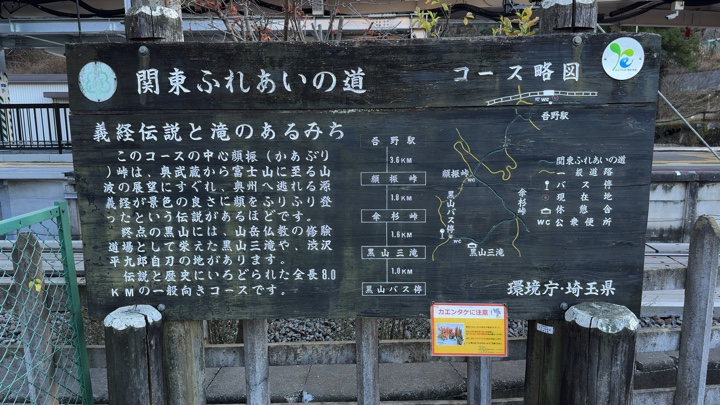 関東ふれあいの道
コース略図
義経伝説と滝のあるみち
このコースの中心顔振(かあぶり
)峠は、奥武蔵から富士山に至る山
波の展望にすぐれ、奥州へ逃れる源
義経が景色の良さに顔をふりふり登
ったという伝説があるほどです。
終点の黒山には、山岳仏教の修験
道場として栄えた黒山三滝や、渋沢
平九郎自刃の地があります。
伝説と歴史にいろどられた全長8.0
KMの一般向きコースです。
吾野駅
3.6KM
顔振峠
1.8KM
傘杉峠
1.6KM
黒山三滝
1.0KM
黒山バス停
WC
吾野駅
顔振峠
WC
傘杉峠
黒山バス停
WC
黒山三滝
関東ふれあいの道
一般道路
バス停
休憩舎
WC 公衆便所
環境庁・埼玉県
カエンタケに注意!